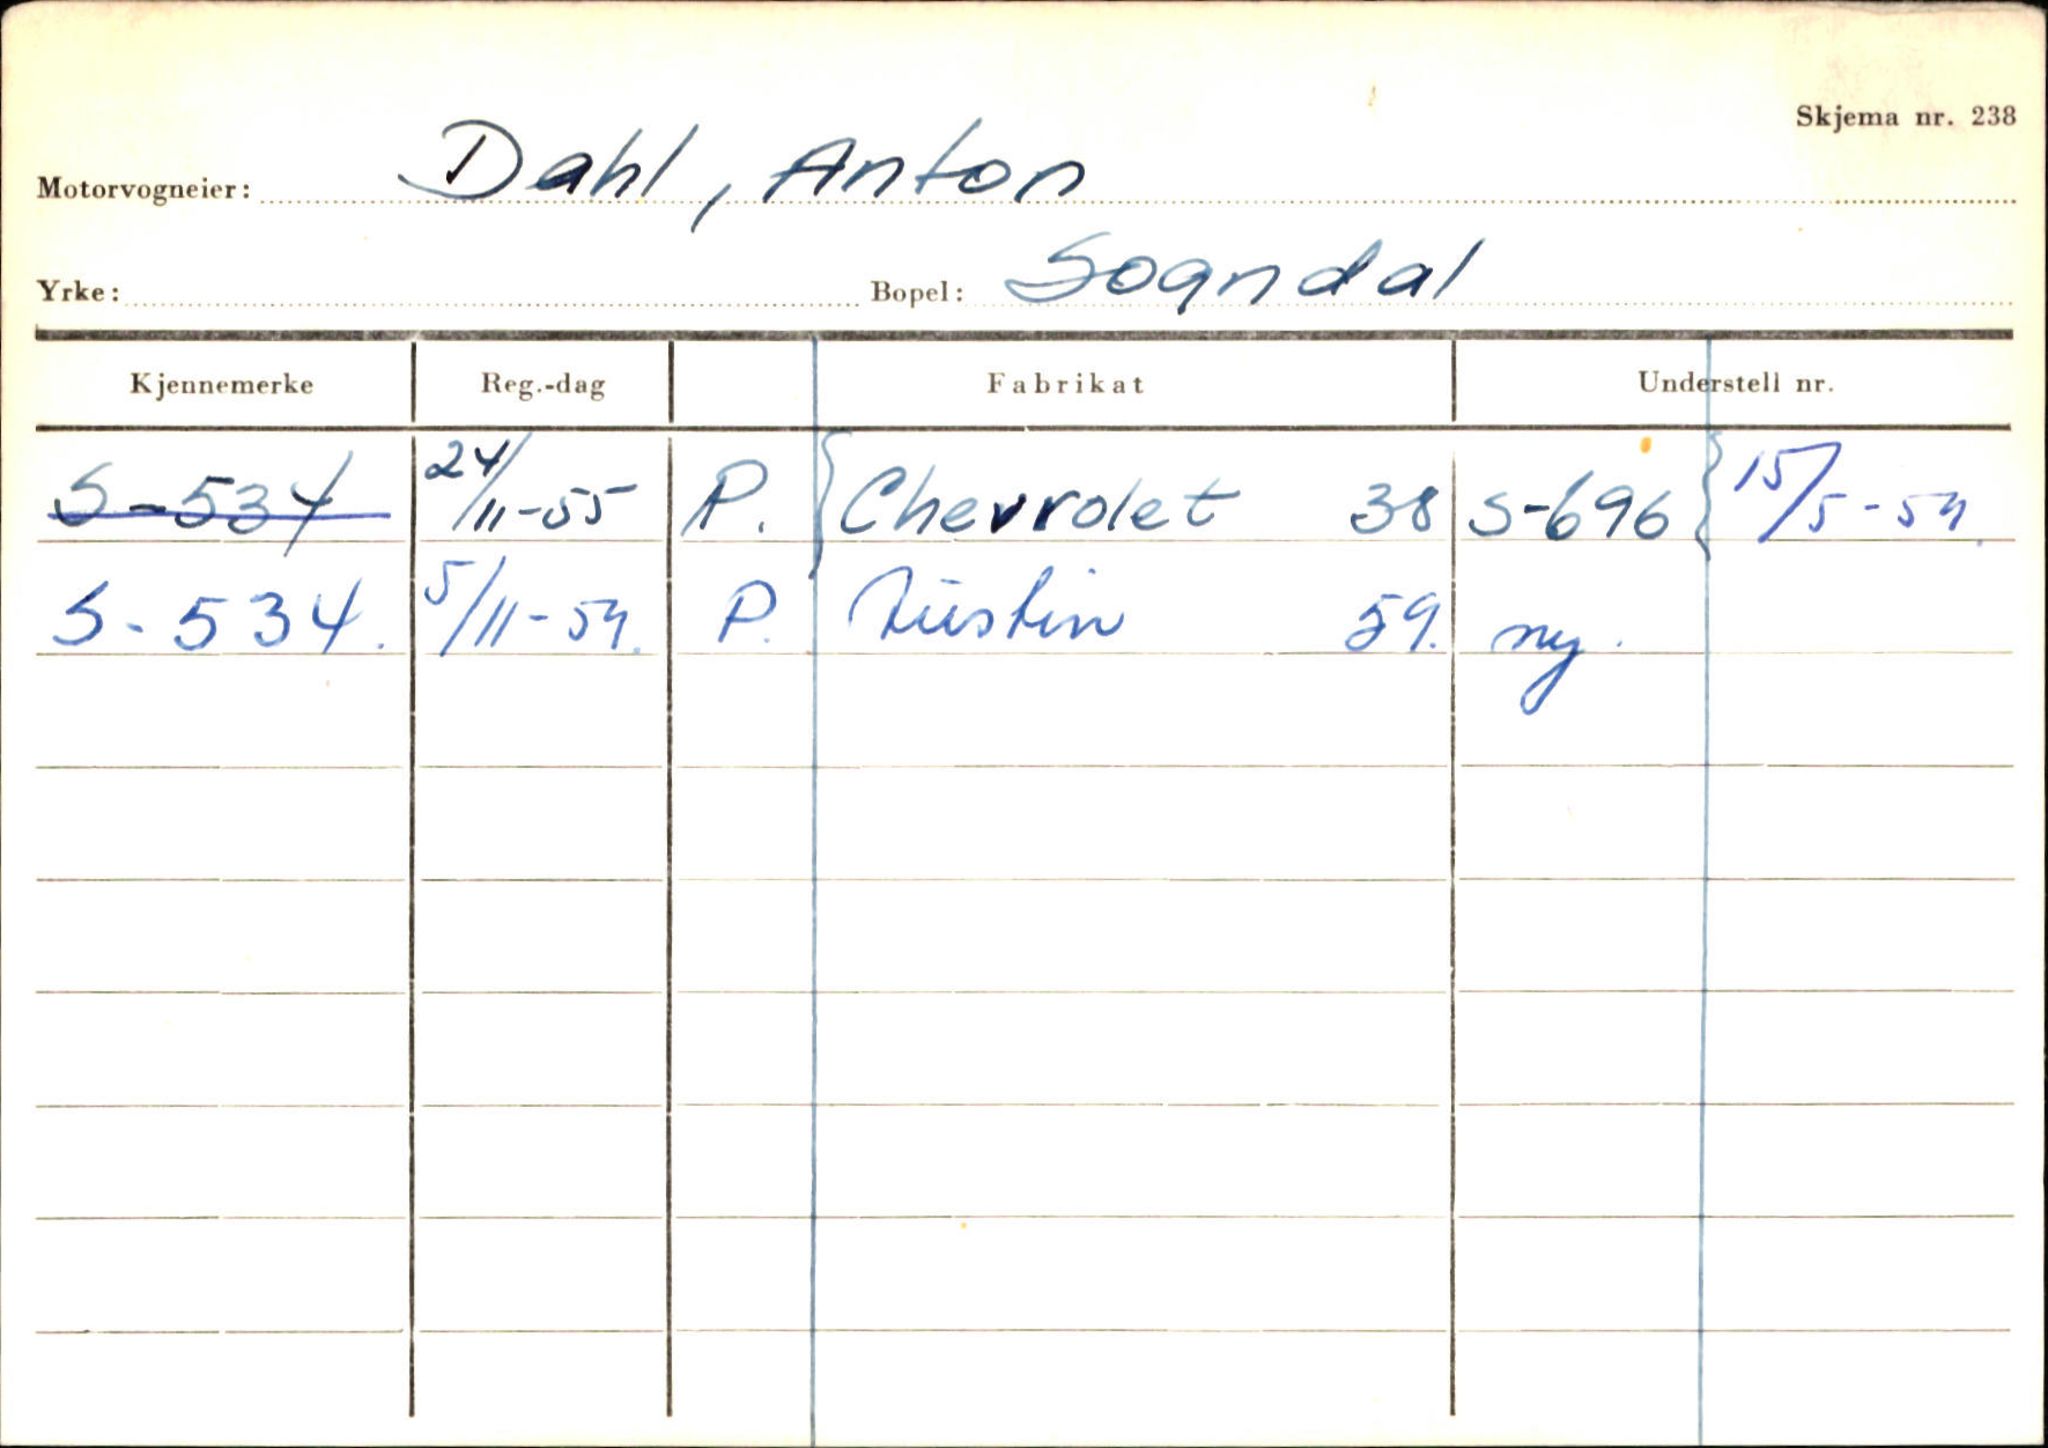 Skjema nr. 238
Motorvogneier: Dahl, Anton
Yrke: Bopel: Sogndal
Kjennemerke Reg.-dag Fabrikat Understell nr.
S-534 24/11-55 P. Chevrolet 38 S-696 15/5-59.
S-534. 5/11-59. P. Austin 59. ny.